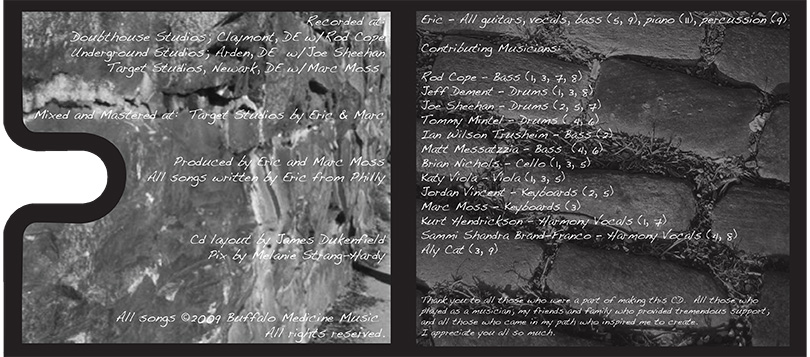 Recorded at:
Doubthouse Studios; Claymont, DE w/Rod Cope
Underground Studios; Arden, DE w/Joe Sheehan
Target Studios, Newark, DE w/ Marc Moss
Mixed and Mastered at: Target Studios by Eric & Marc
Produced by Eric and Marc Moss
All songs written by Eric from Philly
Cd layout by James Dukenfield
Pix by Melanie Strang-Hardy
All songs ©2009 Buffalo Medicine Music
All rights reserved.
Eric - All guitars, vocals, bass (5, 9), piano (11), percussion (9)
Contributing Musicians
Rod Cope - Bass (1, 3, 7, 8)
Jeff Dement - Drums (1, 3, 8)
Joe Sheehan - Drums (2, 5, 7)
Tommy Mintel - Drums (4, 6)
Ian Wilson Trusheim - Bass (2)
Matt Messatzzia - Bass (4, 6)
Brian Nichols - Cello (1, 3, 5)
Katy Viola - Viola (1, 3, 5)
Jordan Vincent - Keyboards (2, 5)
Marc Moss - Keyboards (3)
Kurt Hendrickson - Harmony Vocals (1, 7)
Sammi Shandra Brand-Franco - Harmony Vocals (4, 8)
Aly Cat (3, 9)
Thank you to all those who were a part of making this CD. All those who
played as a musician, my friends and family who provided tremendous support,
and all those who came in my path who inspired me to create.
I appreciate you all so much.